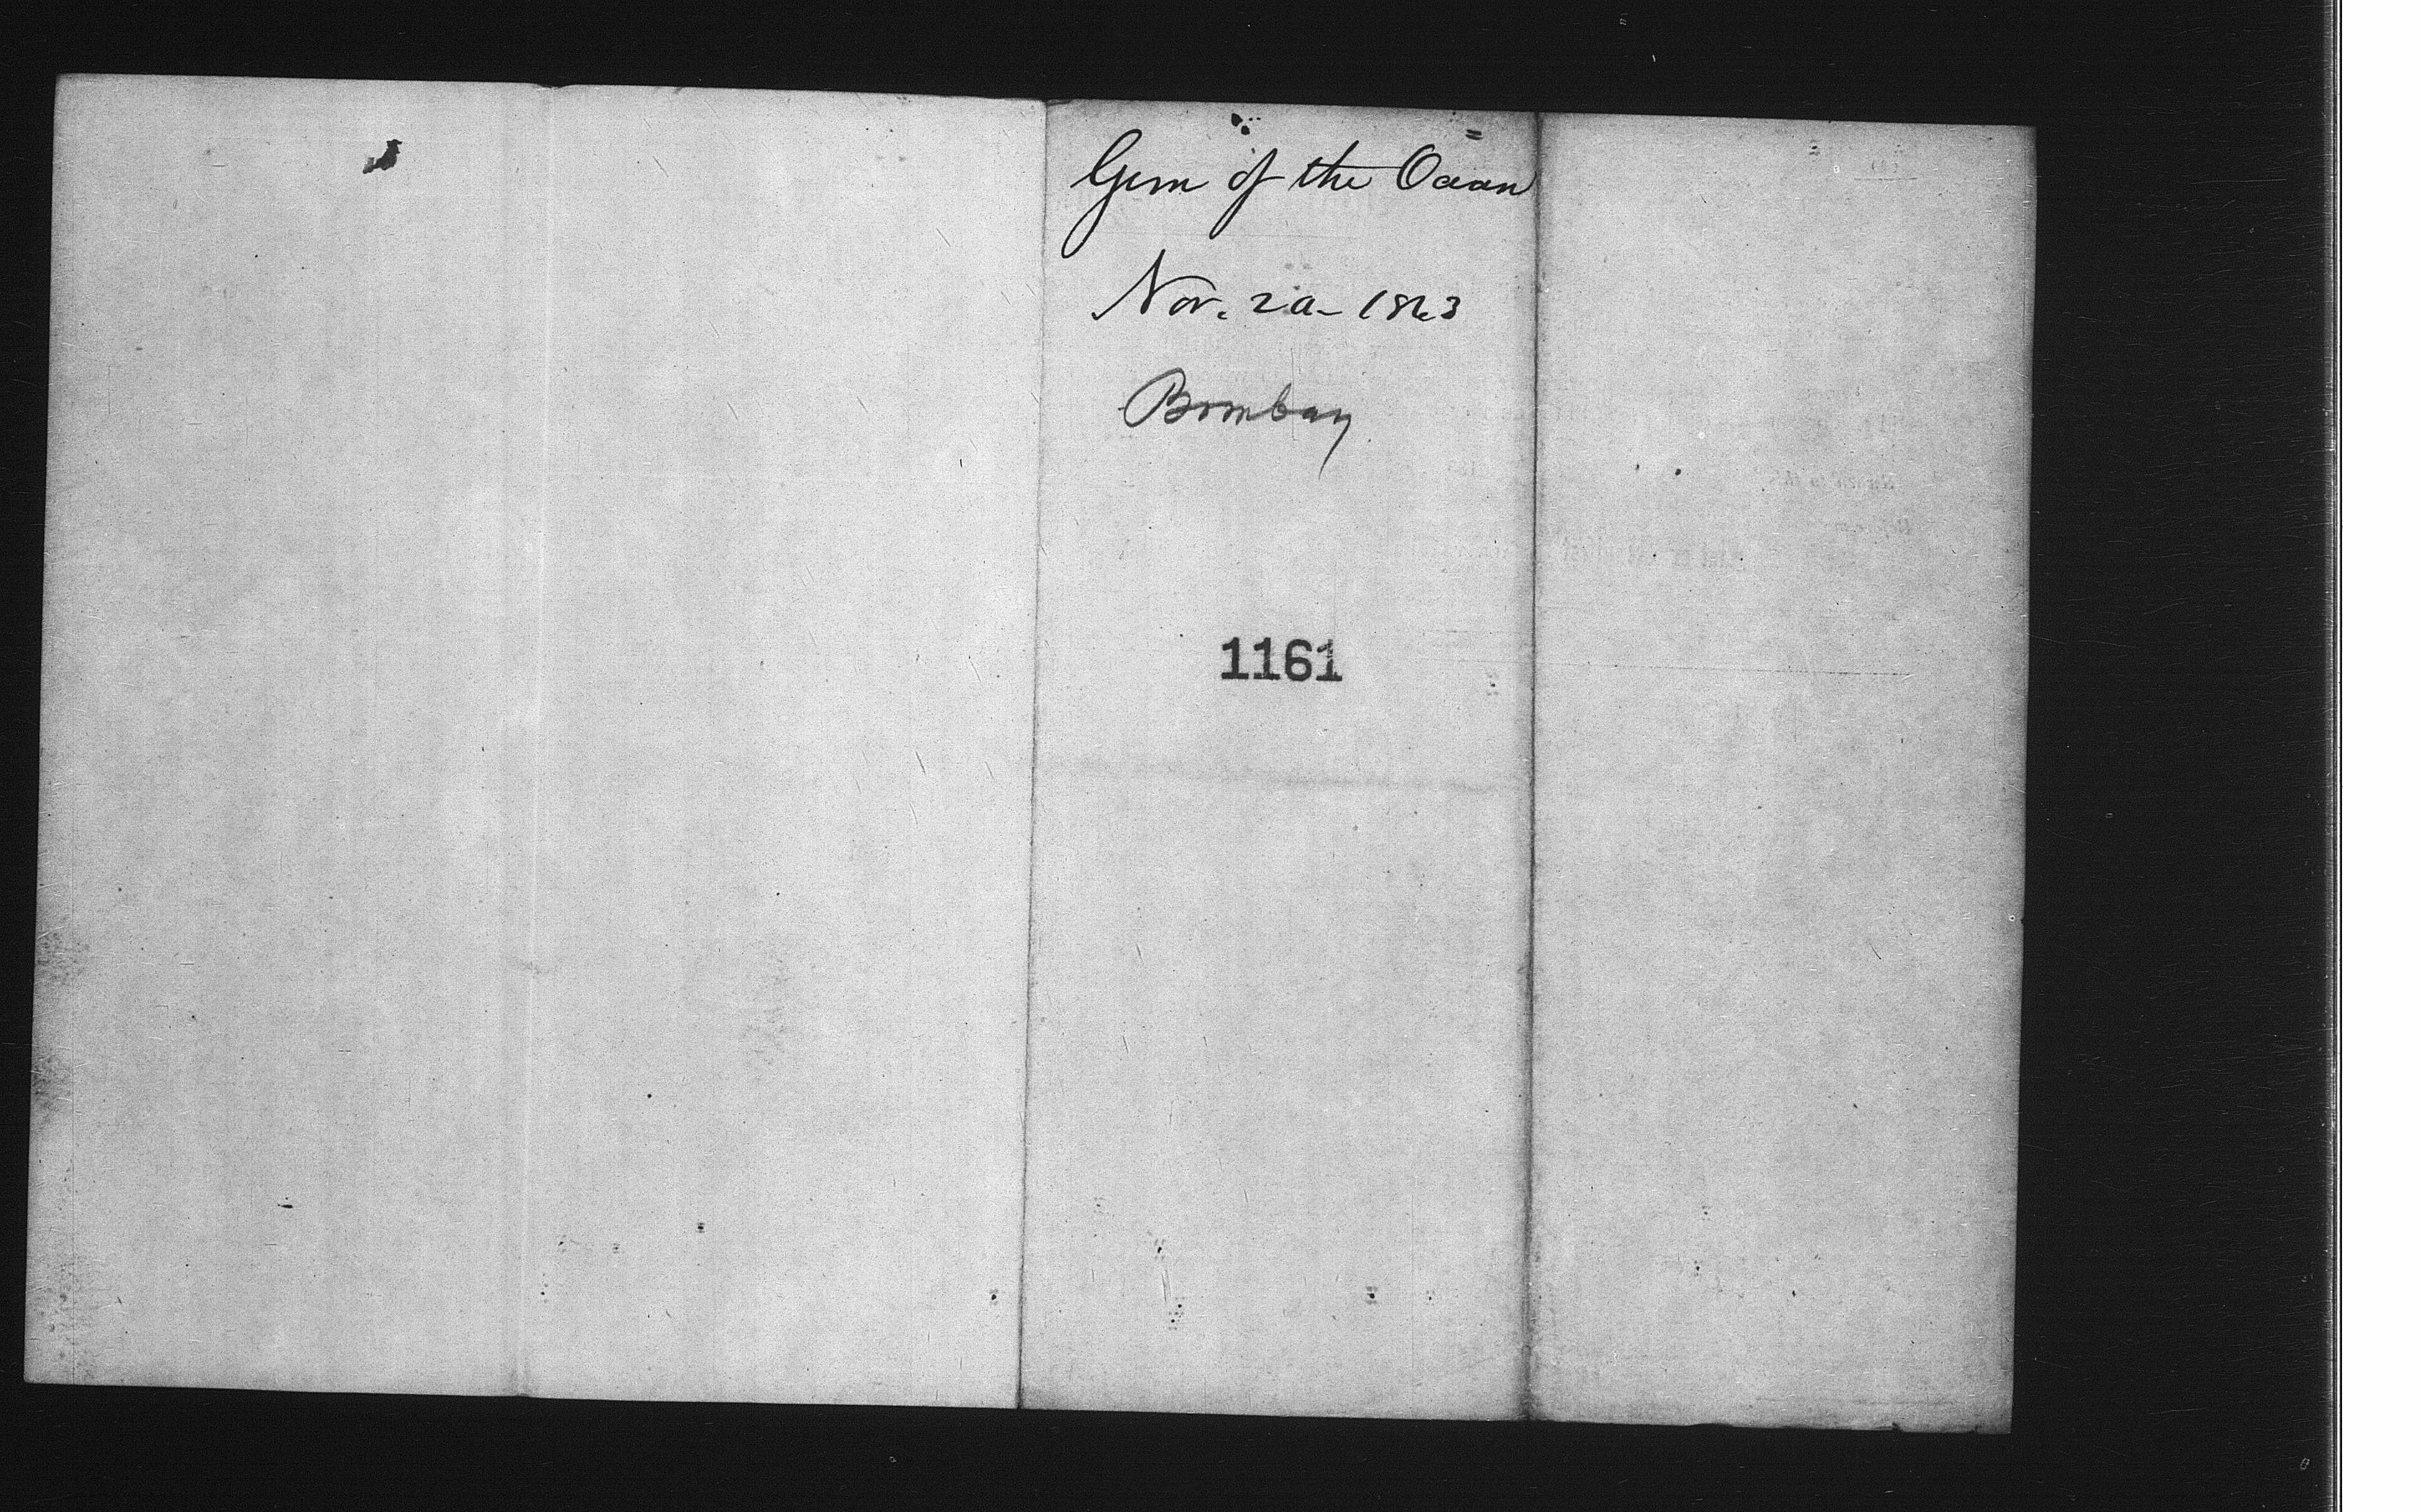 Gem of the Ocean
Nov. 20 - 1863
Bombay
1161